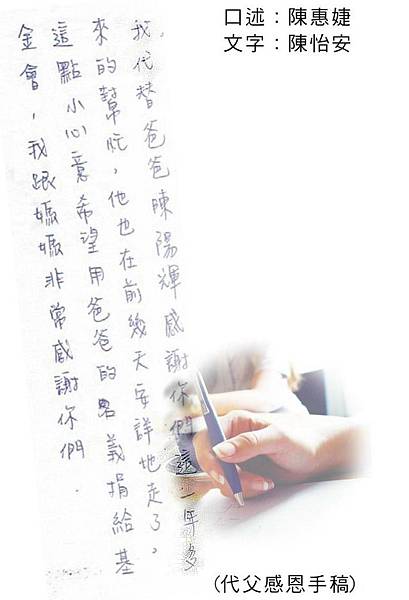 口述：陳惠婕
文字：陳怡安
我代替爸爸陳陽輝感謝你們這一年多
來的幫忙，他也在前幾天安詳地走了。
這點小心意希望用爸爸的名義捐給基
金會，我跟媽媽非常感謝你們．
(代父感恩手稿)